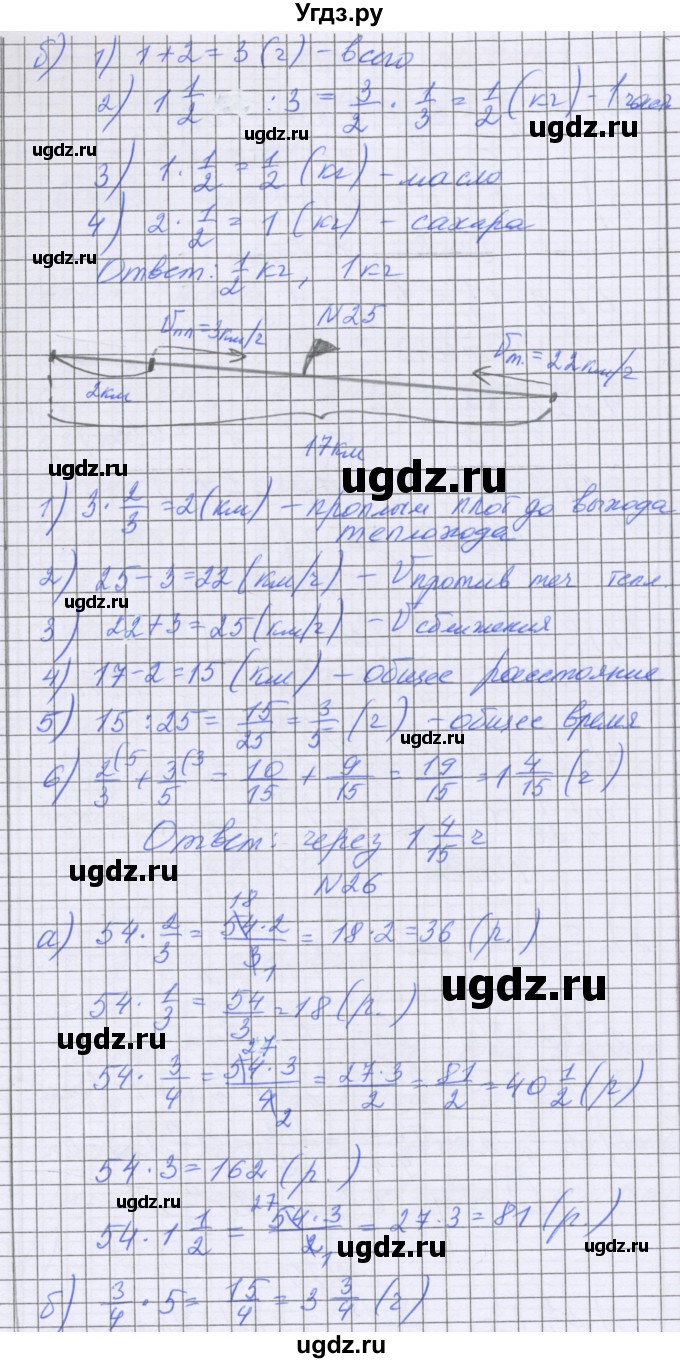 Угдз.ру
б) 1) 1+2=3 (ч) - всего
2) 1 1/2 : 3 = 3/2 · 1/3 = 1/2 (кг) - 1 част
ugdz.ru ugdz.ru ugdz.ru
3) 1 · 1/2 = 1/2 (кг) - масло
4) 2 · 1/2 = 1 (кг) - сахара
ugdz.ru ugdz.ru
Ответ: 1/2 кг, 1 кг
N25
Vпл=3км/ч Vт.=22км/ч
2км
17км
ugdz.ru ugdz.ru
1) 3 · 2/3 = 2 (км) - проплым плот до выхода
теплохода
2) 25-3=22 (км/ч) - V против теч тепл.
ugdz.ru ugdz.ru
3) 22+3=25 (км/ч) - V сближения
4) 17-2=15 (км) - общее расстояние
5) 15 : 25 = 15/25 = 3/5 (ч) - общее время
ugdz.ru ugdz.ru
6) 2/3 (5 + 3/5 (3 = 10/15 + 9/15 = 19/15 = 1 4/15 (ч)
Ответ: через 1 4/15 ч
ugdz.ru ugdz.ru
N26
а) 54 · 2/3 = 54·2/3 18 1 = 18·2=36 (р.)
54 · 1/3 = 54/3 = 18 (р.)
ugdz.ru ugdz.ru
54 · 3/4 = 54·3/4 27 2 = 27·3/2 = 81/2 = 40 1/2 (р)
54 · 3 = 162 (р.)
ugdz.ru
54 · 1 1/2 = 54·3/2 27 1 = 27·3=81 (р.)
ugdz.ru ugdz.ru ugdz.ru
б) 3/4 · 5 = 15/4 = 3 3/4 (ч)
ugdz.ru